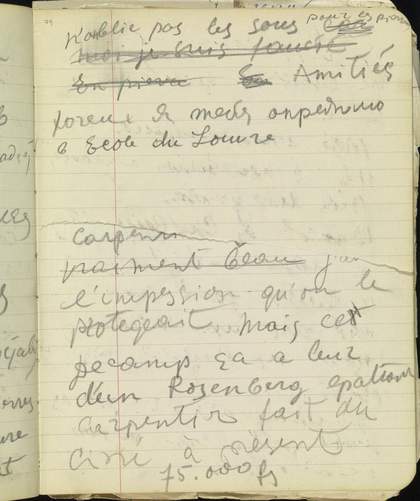 N'oublie pas les sous pour les pierres
moi je suis foncé
En pierre Amitiés
de medes
a Ecole du Louvre
Carpentier
vraiment beau j'ai
l'impression qu'on le
protegeait mais cet
Decamp ça a l'air
d'un Rosenberg epatant
Carpentier fait du
ciré à présent
75.000 fs